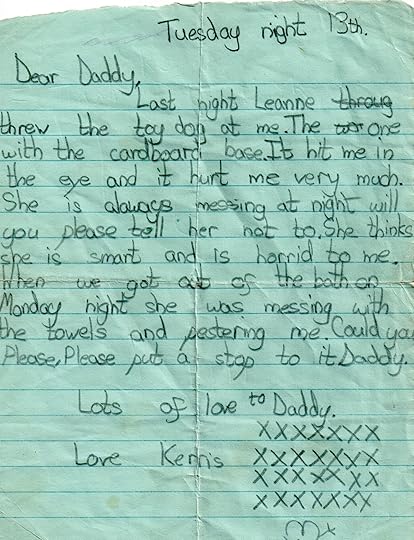 Tuesday night 13th.
Dear Daddy,
Last night Leanne throug
threw the toy dog at me. The one
with the cardboard base. It hit me in
the eye and it hurt me very much.
She is alaways messing at night will
you please tell her not to. She thinks
she is smart and is horrid to me.
When we got out of the bath on
Monday night she was messing with
the towels and pestering me Could you
Please, Please put a stop to it Daddy.
Lots of love to Daddy.
XXXXXXX
Love Kerris XXXXXXX
XXXXXXX
XXXXXXX
X